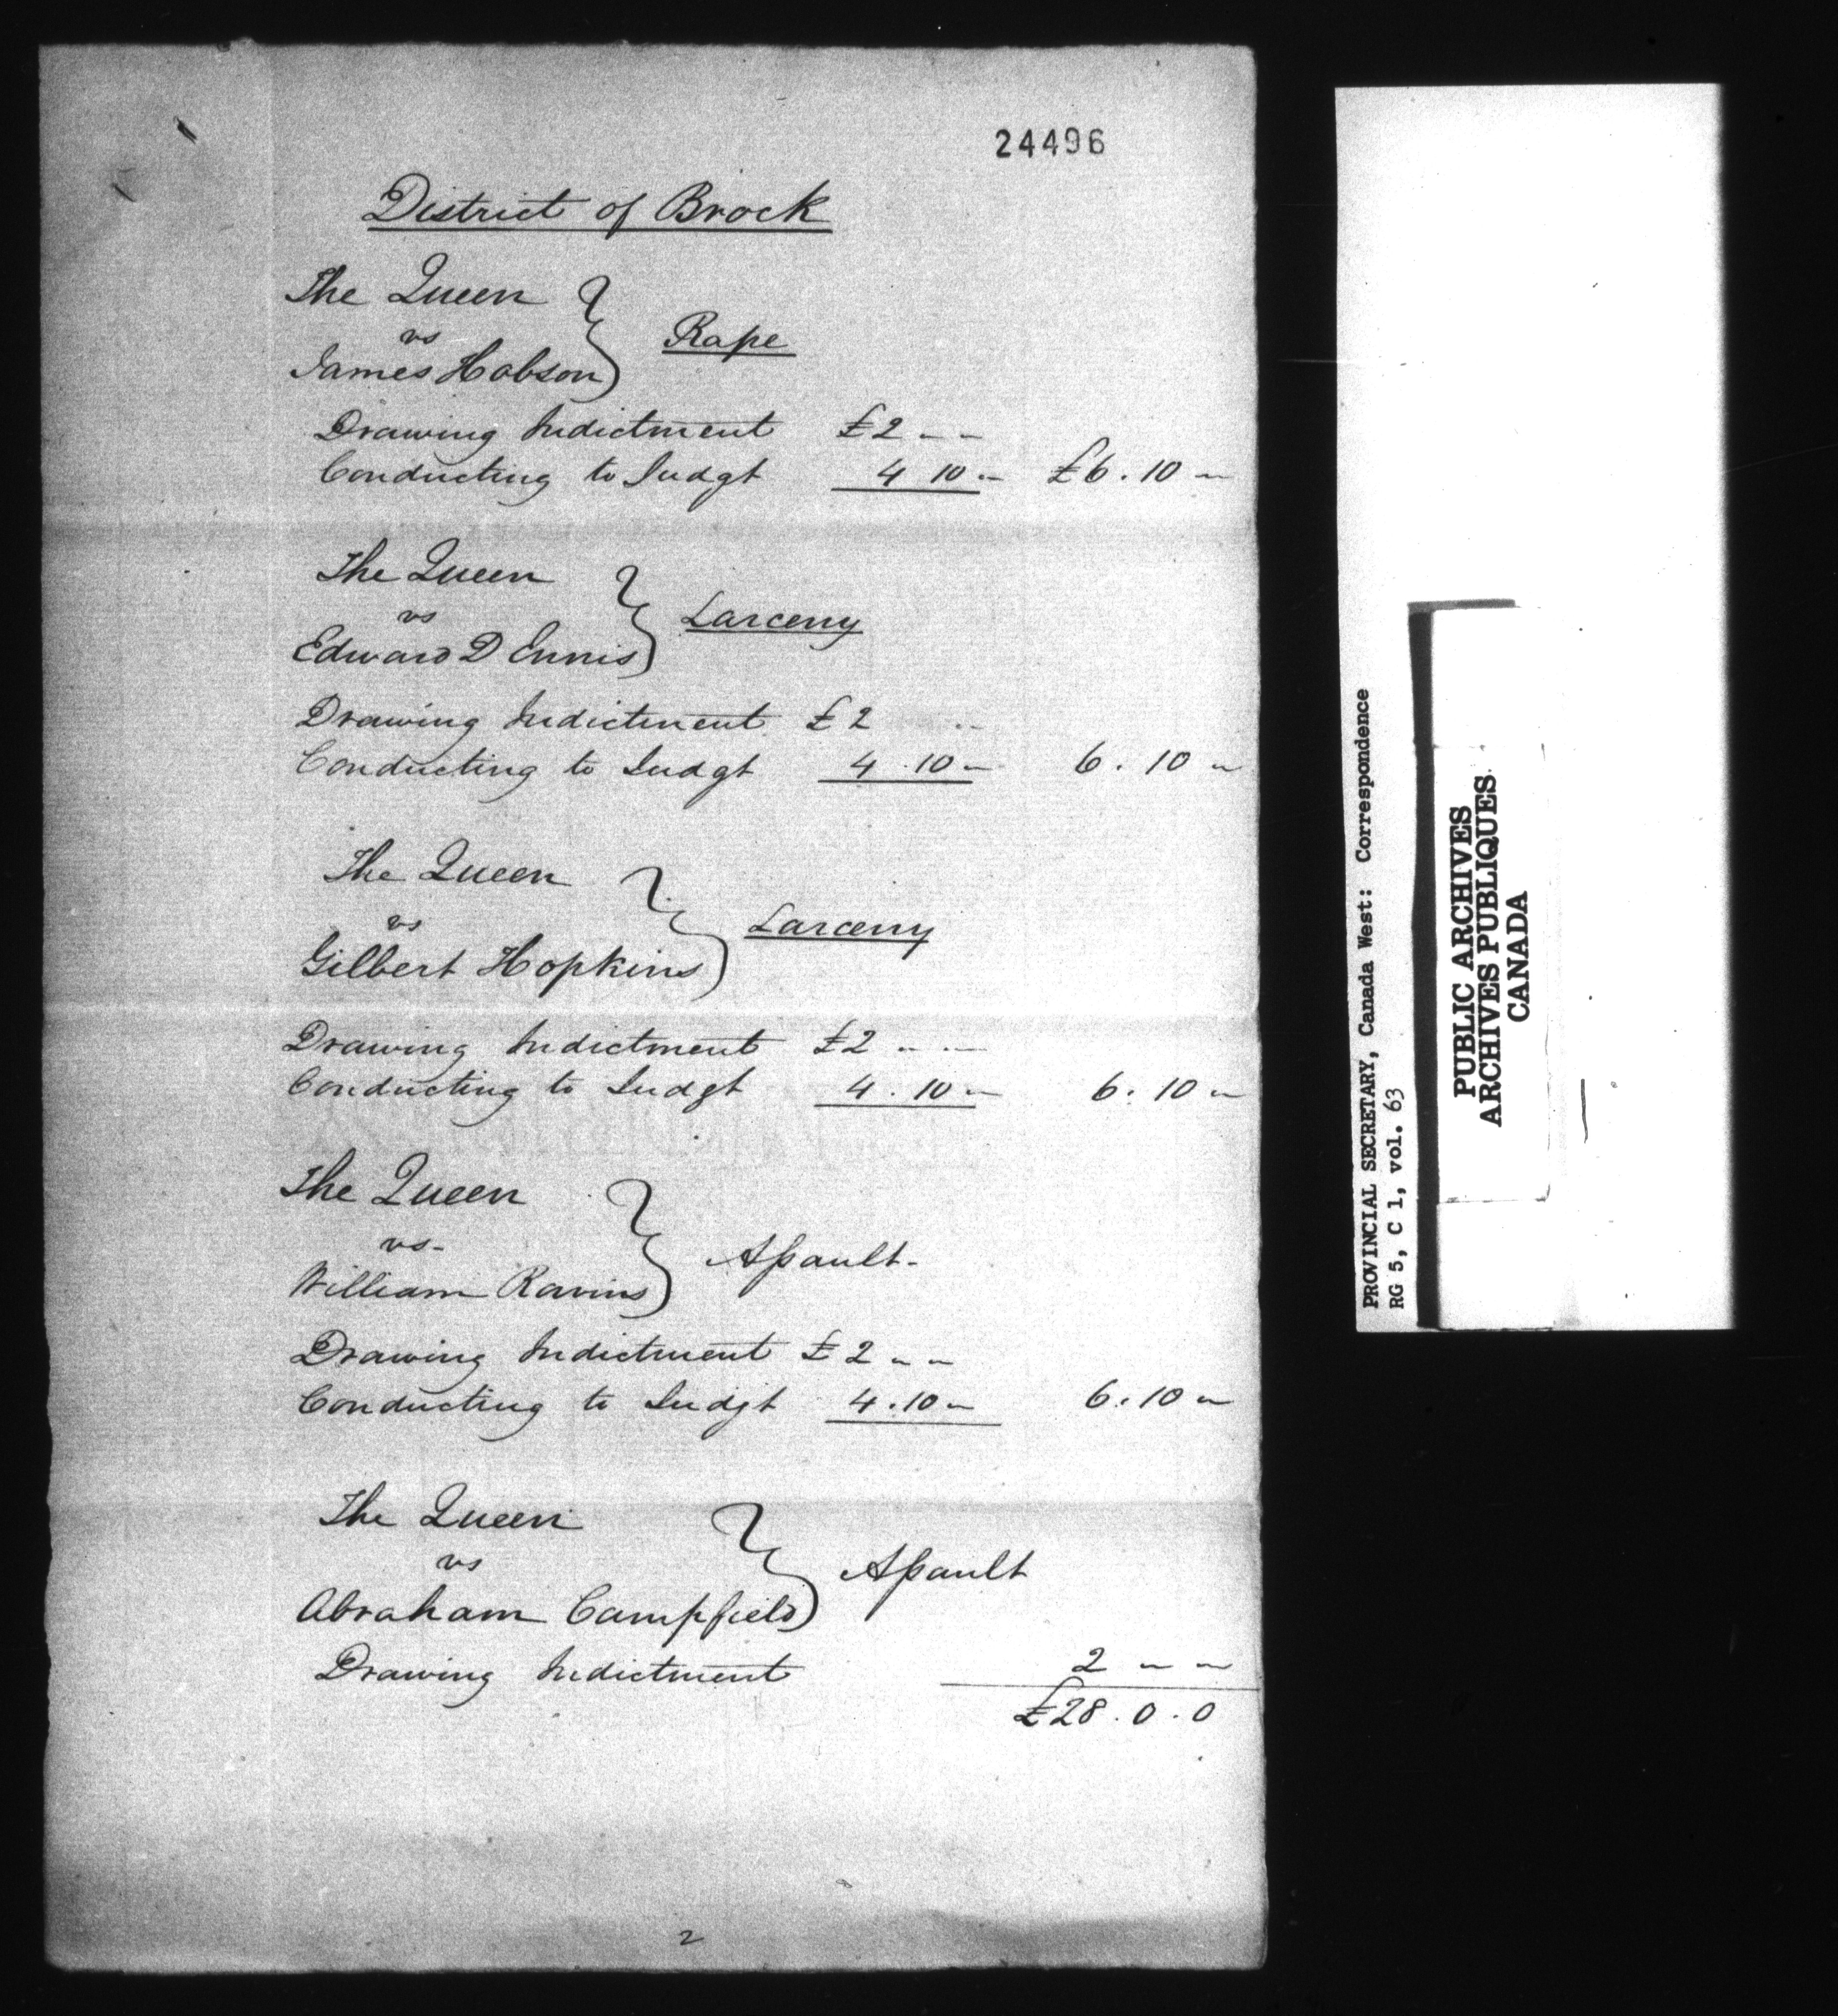 24496
District of Brock
The Queen
vs
James Hobson } Rape
Drawing Indictment £2 - -
Conducting to Judgt 4 10 - £6. 10 -
The Queen
vs
Edward D Ennis } Larceny
Drawing Indictment £2 - -
Conducting to Judgt 4. 10 - 6. 10 -
The Queen
vs
Gilbert Hopkins } Larceny
Drawing Indictment £2 - -
Conducting to Judgt 4. 10 - 6. 10 -
The Queen
vs-
William Ravins } Assault-
Drawing Indictment £2 - -
Conducting to Judgt 4.10 - 6.10 -
The Queen
vs
Abraham Campfield } Assault
Drawing Indictment 2 - -
£28. 0. 0
2
PROVINCIAL SECRETARY, Canada West: Correspondence
RG 5, C 1, vol. 63
PUBLIC ARCHIVES
ARCHIVES PUBLIQUES
CANADA